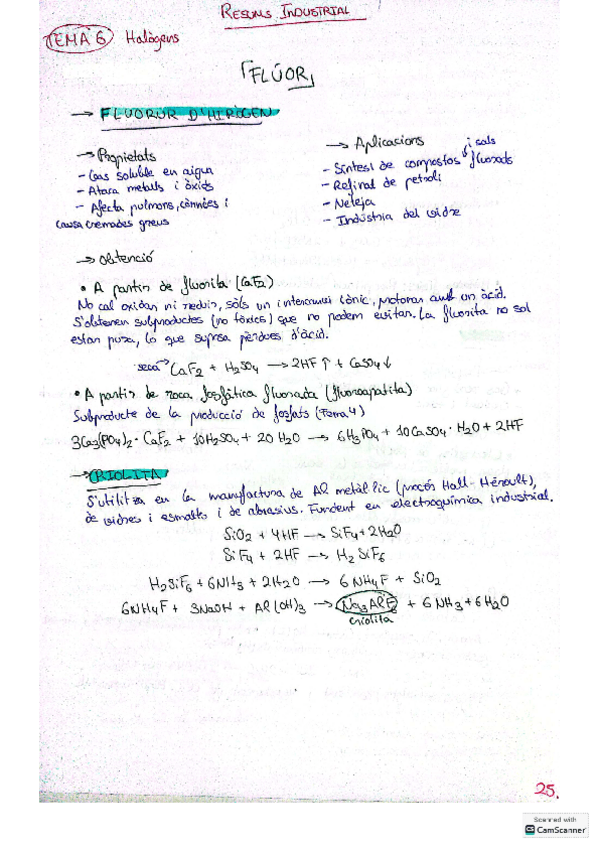 RESUMS INDUSTRIAL
TEMA 6 Halògens
FLÚOR
→ FLUORUR D'HIRÒGEN
→ Propietats
- Gas soluble en aigua
- Ataca metalls i òxids
- Afecta pulmons, còrnies i
causa cremades greus
→ Aplicacions
- Síntesi de compostos i sals fluorads
- Refinat de petroli
- Neteja
- Indústria del vidre
→ Obtenció
• A partir de fluorita (CaF2)
No cal oxidar ni reduir, sols un intercanvi iònic, protonar amb un àcid.
S'obtenen subproductes (no tòxics) que no podem evitar. La fluorita no sol
estar pura, lo que suposa pèrdues d'àcid.
seca → CaF2 + H2SO4 → 2HF ↑ + CaSO4 ↓
• A partir de roca fosfàtica fluorada (fluoroapatita)
Subproducte de la producció de fosfats (Tema 4)
3Ca3(PO4)2 · CaF2 + 10H2SO4 + 20 H2O → 6H3PO4 + 10CaSO4 · H2O + 2HF
→ CRIOLITA
S'utilitza en la manufactura de Al metàl·lic (procés Hall-Héroult),
de vidres i esmalts i de abrasius. Fundent en electroquímica industrial.
SiO2 + 4HF → SiF4 + 2H2O
SiF4 + 2HF → H2SiF6
H2SiF6 + 6NH3 + 2H2O → 6 NH4F + SiO2
6NH4F + 3NaOH + Al(OH)3 → Na3AlF6 + 6 NH3 + 6H2O
criolita
25.
Scanned with
CS CamScanner